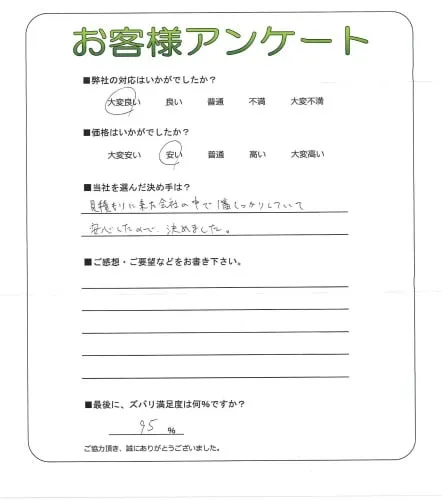 お客様アンケート
■弊社の対応はいかがでしたか？
大変良い 良い 普通 不満 大変不満
■価格はいかがでしたか？
大変安い 安い 普通 高い 大変高い
■当社を選んだ決め手は？
見積もりに来た会社の中で1番しっかりしていて
安心したので、決めました。
■ご感想・ご要望などをお書き下さい。
■最後に、ズバリ満足度は何%ですか？
95 %
ご協力頂き、誠にありがとうございました。